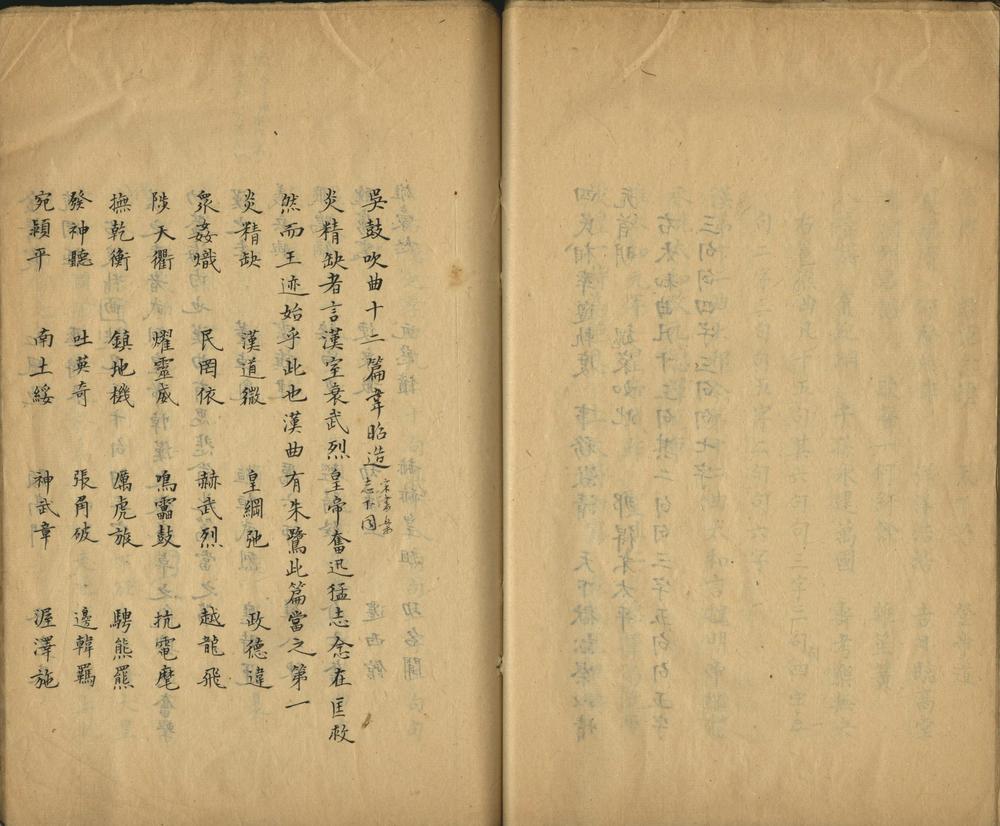 吳鼓吹曲十二篇韋昭造 宋書樂志下同
炎精缺者言漢室衰武烈皇帝奮迅猛志念在匡救
然而王迹始乎此也漢曲有朱鷺此篇當之第一
炎精缺 漢道微 皇綱弛 政德違
衆姦熾 民罔依 赫武烈 越龍飛
陟天衢 耀靈威 鳴靁鼓 抗電麾
撫乾衡 鎮地機 厲虎旅 騁熊羆
發神聽 吐英奇 張角破 邊韓羈
宛潁平 南土綏 神武章 渥澤施